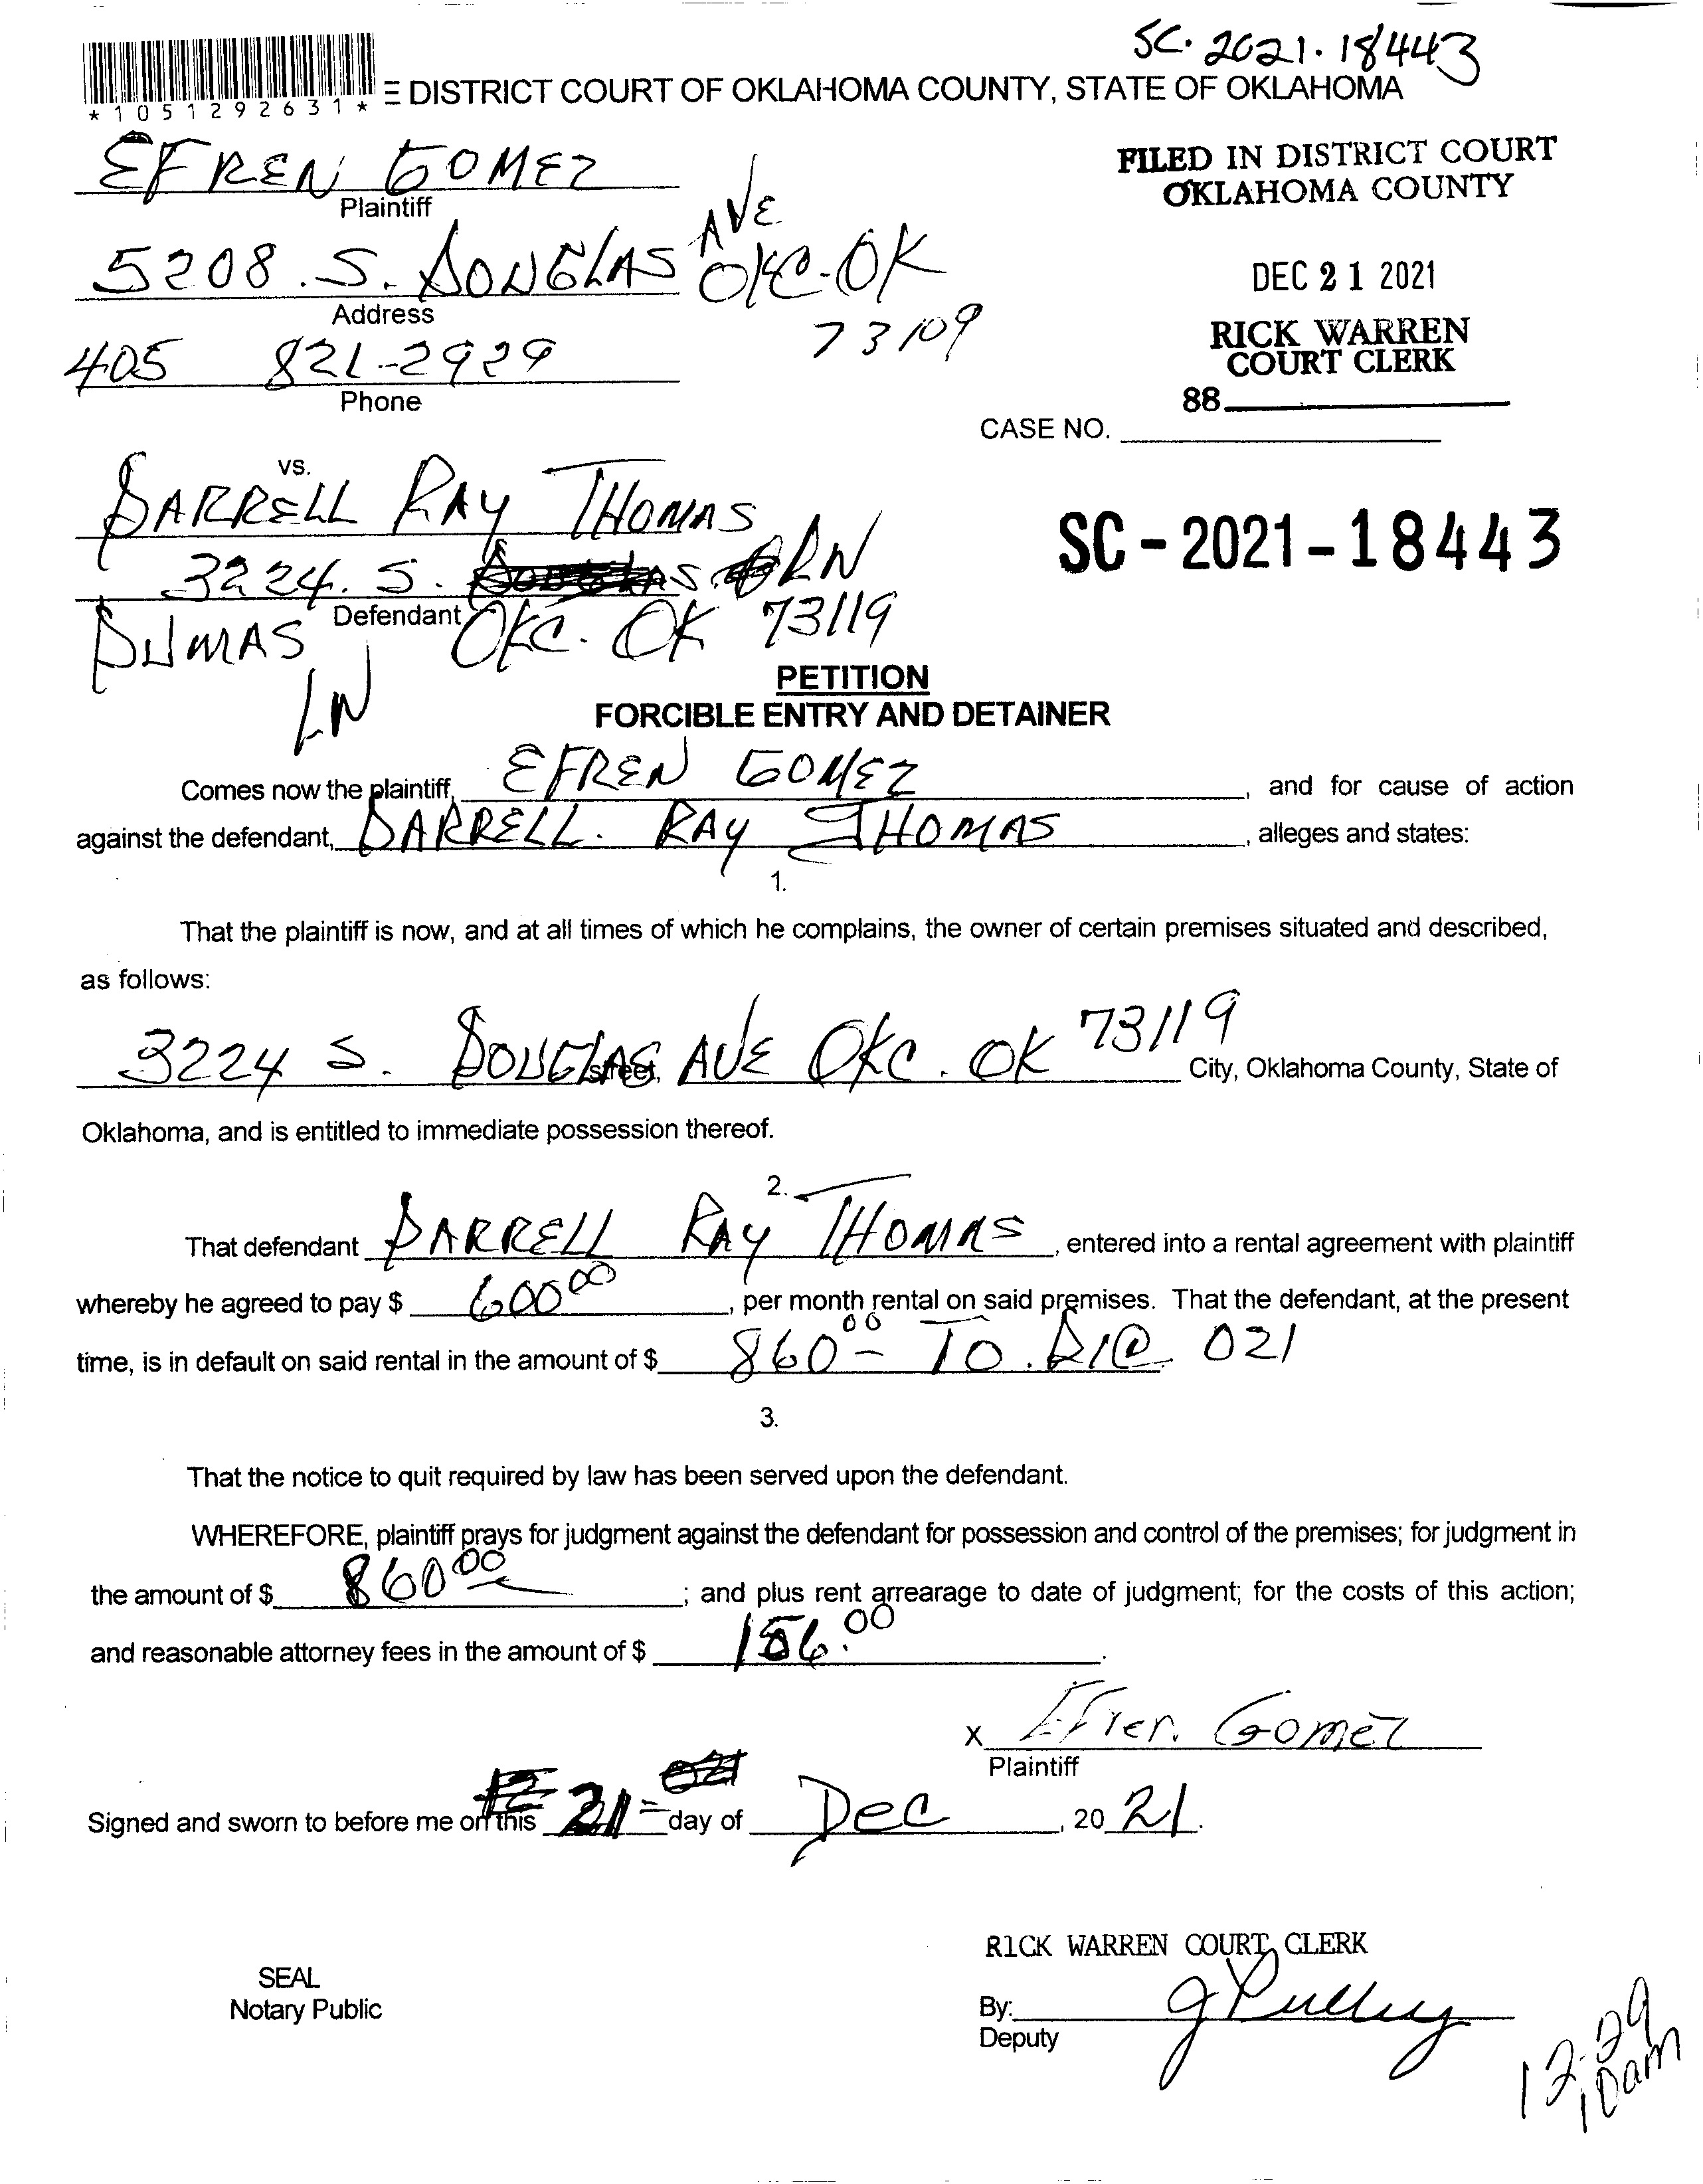 SC. 2021. 18443
*1051292631*
DISTRICT COURT OF OKLAHOMA COUNTY, STATE OF OKLAHOMA
EFREN GOMEZ
Plaintiff
FILED IN DISTRICT COURT
OKLAHOMA COUNTY
5208. S. DOUGLAS AVE OKC-OK
73109
Address
DEC 21 2021
405 821-2929
Phone
RICK WARREN
COURT CLERK
88
CASE NO.
vs.
DARRELL RAY THOMAS
3224. S. LN
Defendant
DUMAS OKC. OK 73119
LN
SC-2021-18443
PETITION
FORCIBLE ENTRY AND DETAINER
Comes now the plaintiff, EFREN GOMEZ, and for cause of action
against the defendant, DARRELL. RAY THOMAS, alleges and states:
1.
That the plaintiff is now, and at all times of which he complains, the owner of certain premises situated and described,
as follows:
3224 S. DOUGLAS AVE OKC. OK 73119 City, Oklahoma County, State of
street,
Oklahoma, and is entitled to immediate possession thereof.
2.
That defendant DARRELL RAY THOMAS, entered into a rental agreement with plaintiff
whereby he agreed to pay $ 600 00, per month rental on said premises. That the defendant, at the present
time, is in default on said rental in the amount of $ 860 00 - TO. DIC 021
3.
That the notice to quit required by law has been served upon the defendant.
WHEREFORE, plaintiff prays for judgment against the defendant for possession and control of the premises; for judgment in
the amount of $ 860 00; and plus rent arrearage to date of judgment; for the costs of this action;
and reasonable attorney fees in the amount of $ 156.00.
X Efren. Gomez
Plaintiff
Signed and sworn to before me on this 21 day of Dec, 20 21.
RICK WARREN COURT CLERK
SEAL
Notary Public
By:
Deputy
12-29
10am